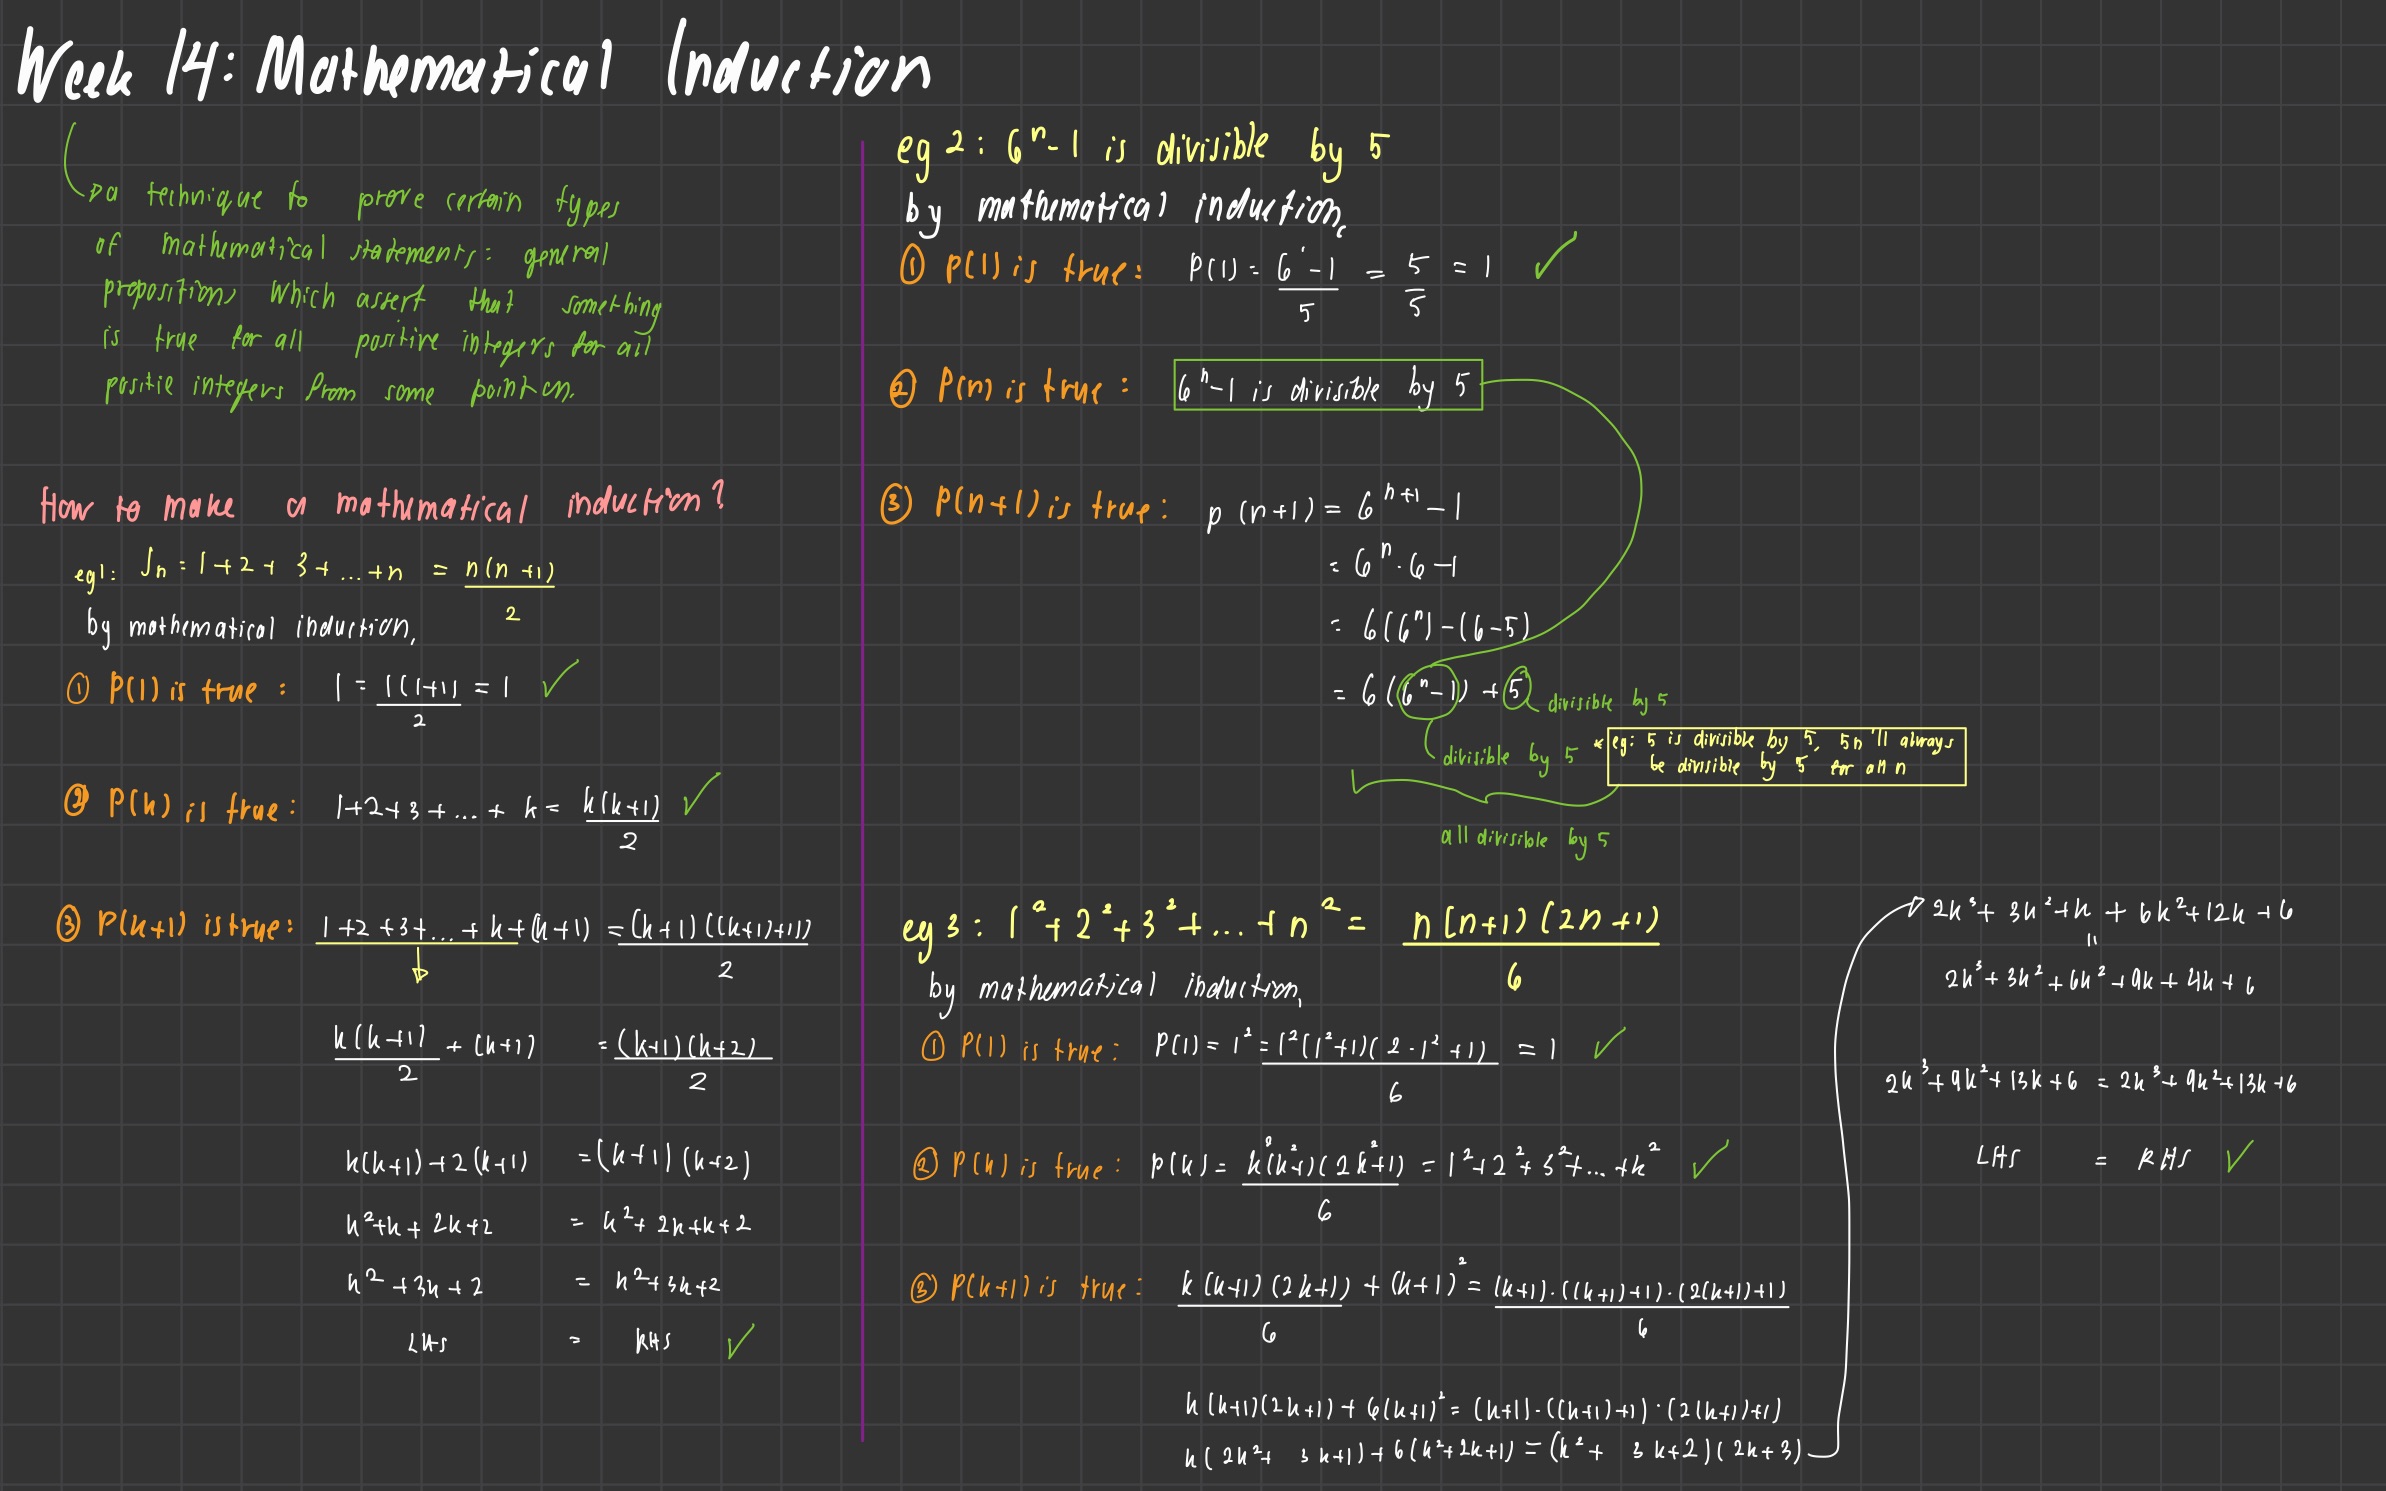 Week 14: Mathematical Induction
a technique to prove certain types
of mathematical statements: general
propositions which assert that something
is true for all positive integers for all
positie integers from some point on.
How to make a mathematical induction?
eg1: Sn = 1+2+3+...+n = n(n+1)/2
by mathematical induction,
① P(1) is true: 1 = 1(1+1)/2 = 1 ✓
② P(k) is true: 1+2+3+...+k = k(k+1)/2 ✓
③ P(k+1) is true: 1+2+3+...+k+(k+1) = (k+1)((k+1)+1))/2
k(k+1)/2 + (k+1) = (k+1)(k+2)/2
k(k+1)+2(k+1) = (k+1)(k+2)
k²+k+2k+2 = k²+2k+k+2
k²+3k+2 = k²+3k+2
LHS = RHS ✓
eg 2: 6ⁿ-1 is divisible by 5
by mathematical induction,
① P(1) is true: P(1) = 6¹-1/5 = 5/5 = 1 ✓
② P(n) is true: 6ⁿ-1 is divisible by 5
③ P(n+1) is true: p(n+1) = 6ⁿ⁺¹-1
= 6ⁿ·6-1
= 6(6ⁿ)-(6-5)
= 6(6ⁿ-1)+5 divisible by 5
divisible by 5 * eg: 5 is divisible by 5, 5n'll always
be divisible by 5 for all n
all divisible by 5
eg 3: 1²+2²+3²+...+n² = n(n+1)(2n+1)/6
by mathematical induction,
① P(1) is true: P(1) = 1² = 1²(1²+1)(2·1²+1)/6 = 1 ✓
② P(k) is true: p(k) = k²(k²+1)(2k²+1)/6 = 1²+2²+3²+...+k² ✓
③ P(k+1) is true: k(k+1)(2k+1)/6 + (k+1)² = (k+1)·((k+1)+1)·(2(k+1)+1)/6
k(k+1)(2k+1)+6(k+1)² = (k+1)·((k+1)+1)·(2(k+1)+1)
k(2k²+3k+1)+6(k²+2k+1) = (k²+3k+2)(2k+3)
2k³+3k²+k+6k²+12k+6
=
2k³+3k²+6k²+9k+4k+6
2k³+9k²+13k+6 = 2k³+9k²+13k+6
LHS = RHS ✓